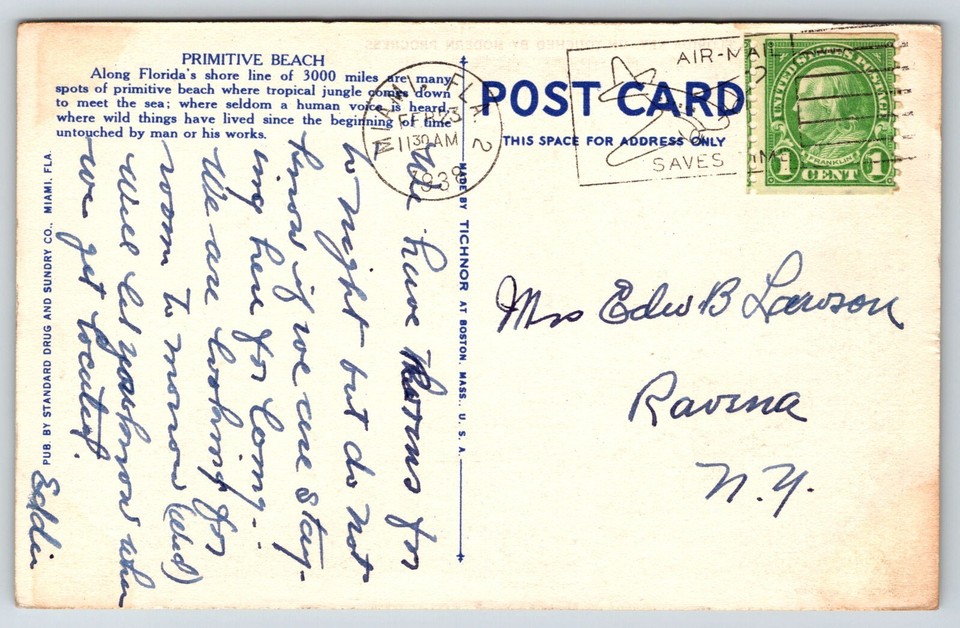 PRIMITIVE BEACH
Along Florida's shore line of 3000 miles are many
spots of primitive beach where tropical jungle comes down
to meet the sea; where seldom a human voice is heard,
where wild things have lived since the beginning of time
untouched by man or his works.
MIAMI, FLA. 2
FEB 23
11 30 AM
1938
AIR-MAIL
SAVES TIME
UNITED STATES POSTAGE
FRANKLIN
1 CENT 1
POST CARD
THIS SPACE FOR ADDRESS ONLY
PUB. BY STANDARD DRUG AND SUNDRY CO., MIAMI, FLA.
MADE BY TICHNOR AT BOSTON, MASS., U. S. A.
We have rooms for
to night but do not
know if we are stay-
ing here for long.
We are looking for
room to morrow (Wed)
will let you know when
we get located.
Eddie
Mrs Edw B Lawson
Ravena
N.Y.